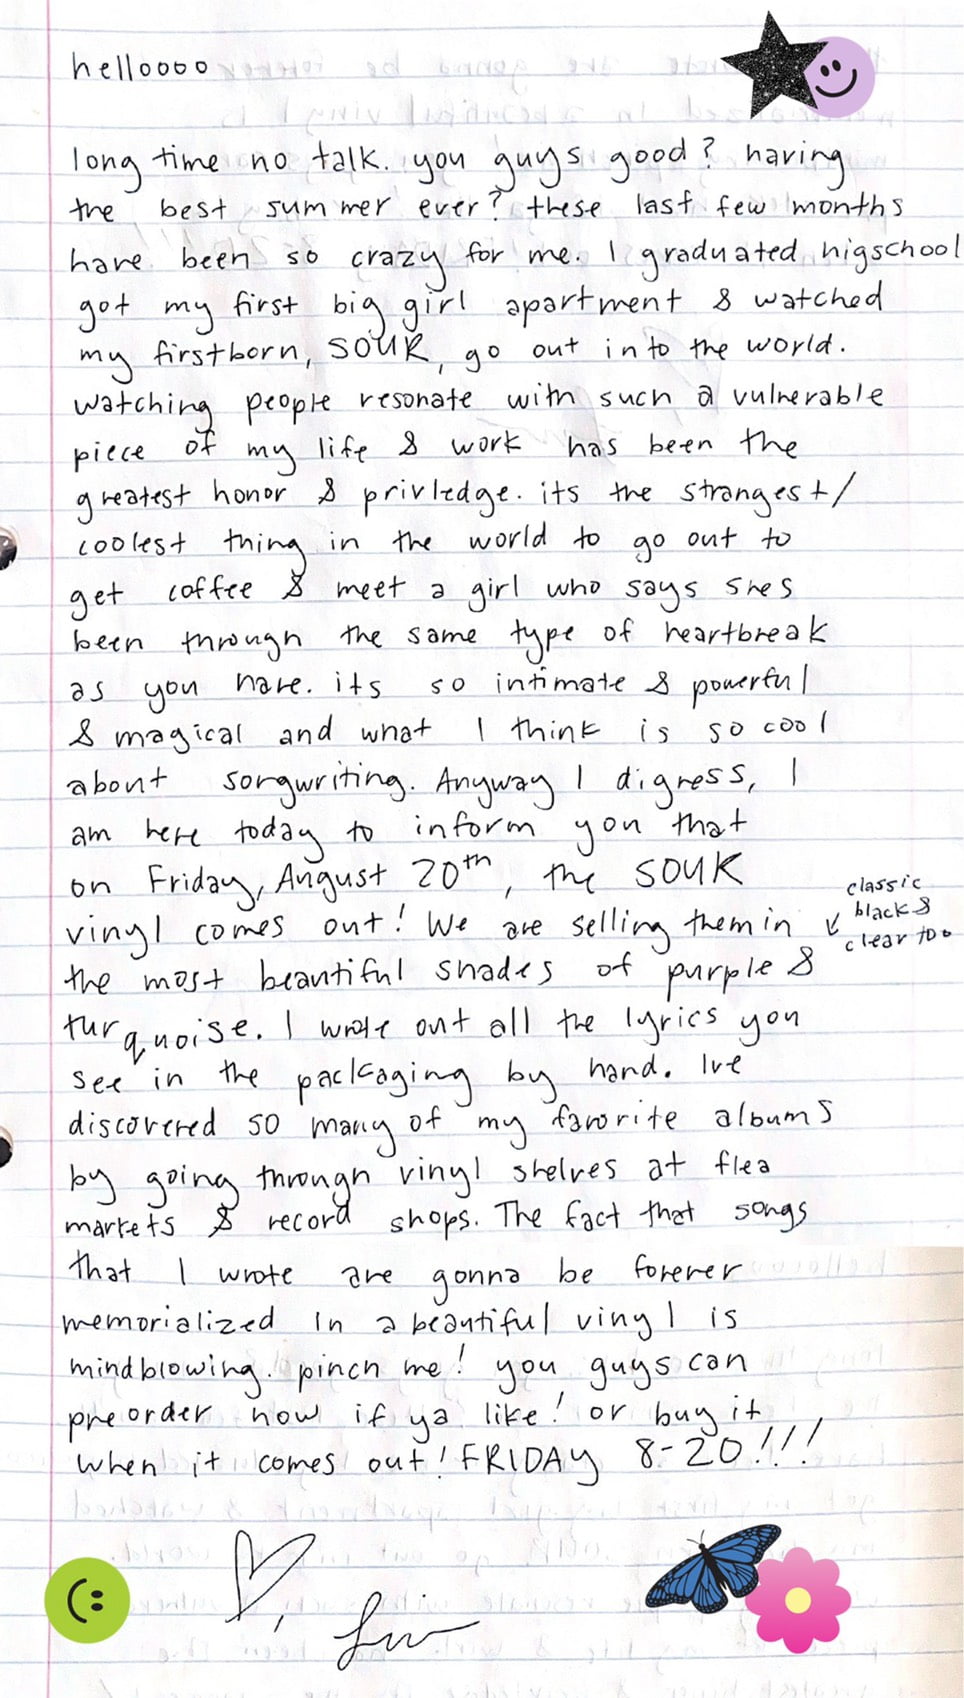 helloooo
long time no talk. you guys good? having
the best summer ever? these last few months
have been so crazy for me. I graduated higschool
got my first big girl apartment & watched
my firstborn, SOUR, go out into the world.
watching people resonate with such a vulnerable
piece of my life & work has been the
greatest honor & privledge. its the strangest/
coolest thing in the world to go out to
get coffee & meet a girl who says shes
been through the same type of heartbreak
as you have. its so intimate & powerful
& magical and what I think is so cool
about songwriting. Anyway I digress, I
am here today to inform you that
on Friday, August 20th, the SOUR
vinyl comes out! We are selling them in
classic
black &
clear too
the most beautiful shades of purple &
turquoise. I wrote out all the lyrics you
see in the packaging by hand. Ive
discovered so many of my favorite albums
by going through vinyl shelves at flea
markets & record shops. The fact that songs
that I wrote are gonna be forever
memorialized in a beautiful vinyl is
mindblowing. pinch me! you guys can
preorder now if ya like! or buy it
when it comes out! FRIDAY 8-20!!!
Liv